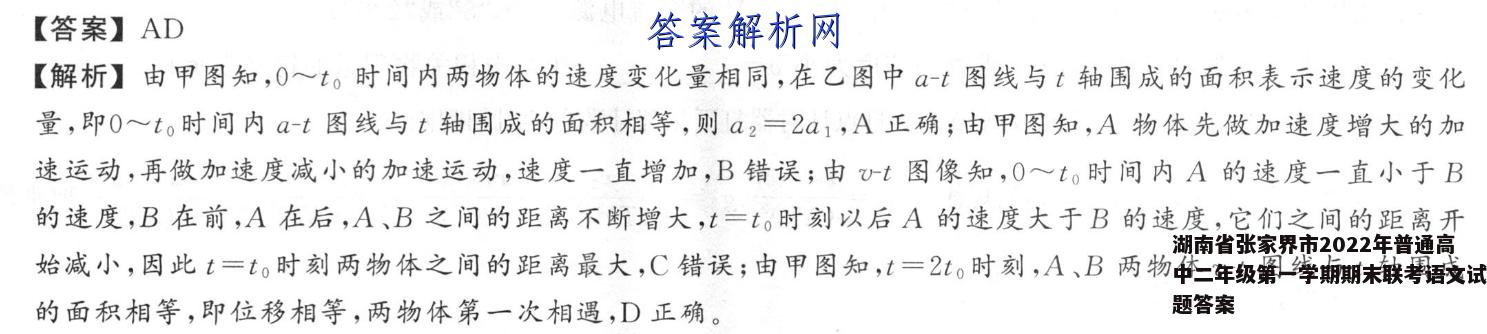 【答案】AD
答案解析网
【解析】由甲图知,0～t₀ 时间内两物体的速度变化量相同,在乙图中 a-t 图线与 t 轴围成的面积表示速度的变化
量,即0～t₀时间内 a-t 图线与 t 轴围成的面积相等,则 a₂=2a₁,A 正确;由甲图知,A 物体先做加速度增大的加
速运动,再做加速度减小的加速运动,速度一直增加,B 错误;由 v-t 图像知,0～t₀时间内 A 的速度一直小于 B
的速度,B 在前,A 在后,A、B 之间的距离不断增大,t=t₀时刻以后 A 的速度大于 B 的速度,它们之间的距离开
始减小,因此 t=t₀时刻两物体之间的距离最大,C 错误;由甲图知,t=2t₀时刻,A、B 两物体
的面积相等,即位移相等,两物体第一次相遇,D 正确。
湖南省张家界市2022年普通高
中二年级第一学期期末联考语文试
题答案